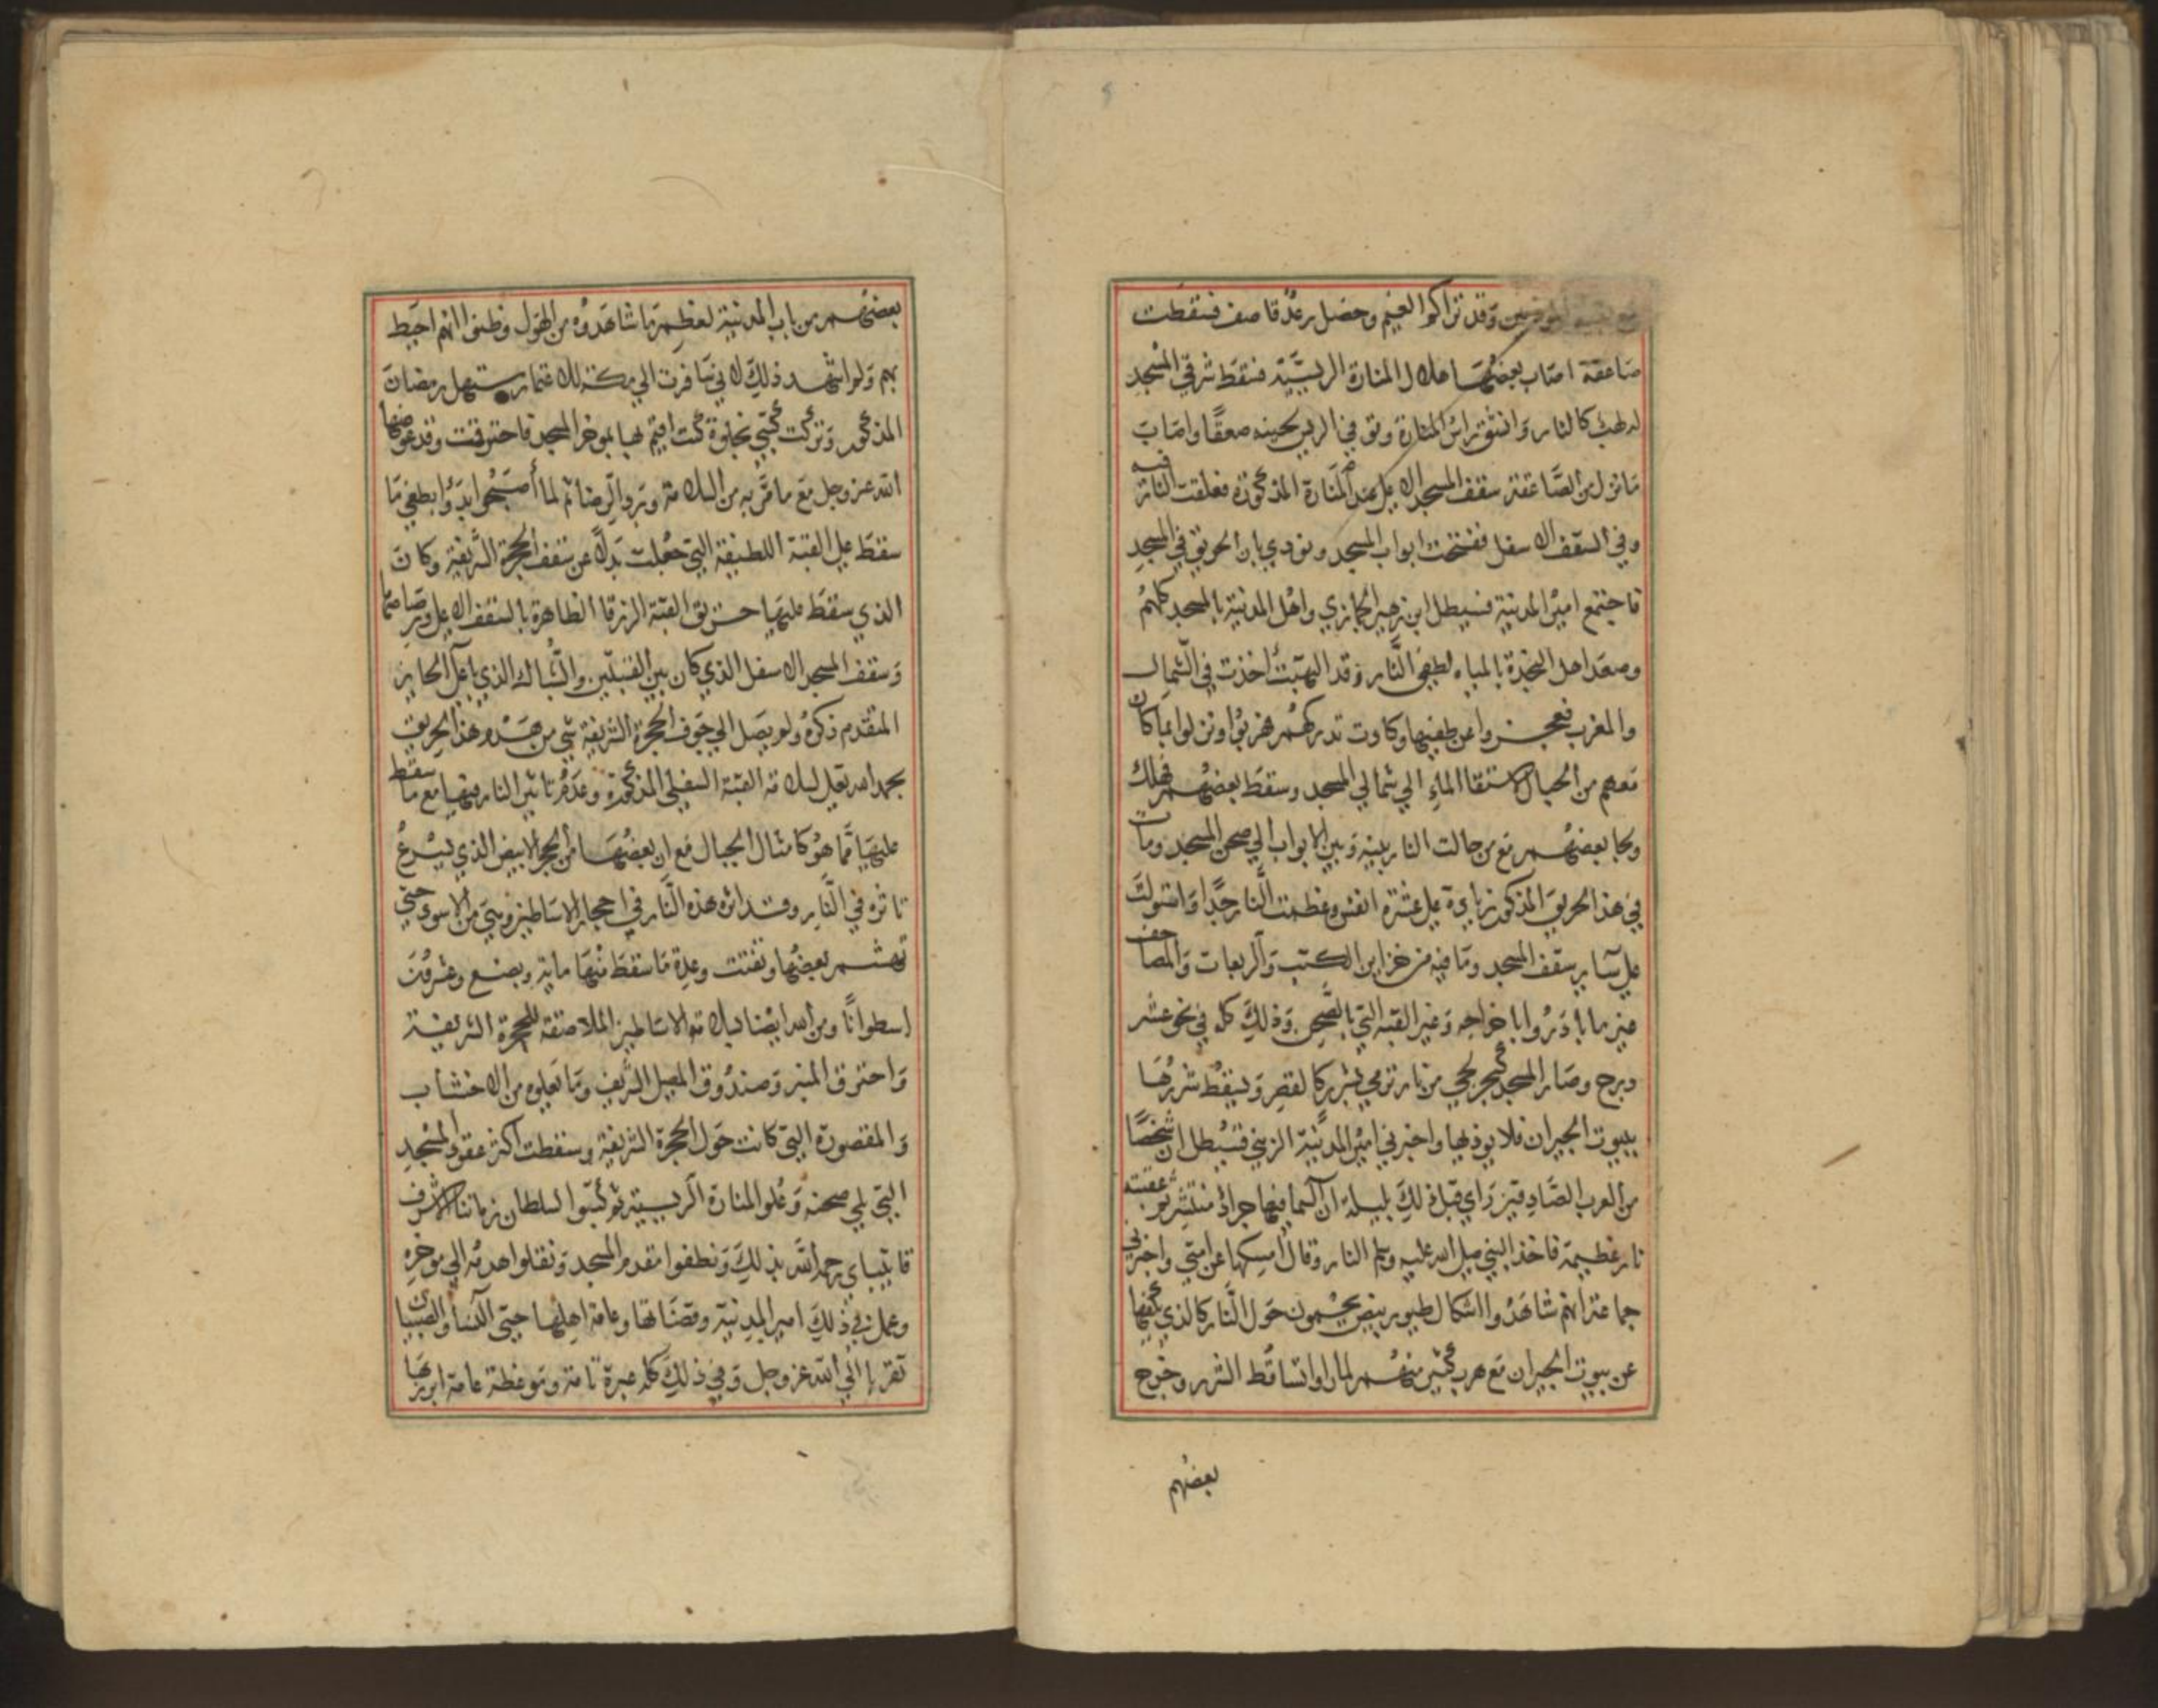 وقد تراكم الغيم وحصل رعد قاصف فسقطت
صاعقة اصاب بعضها هلال المنارة الرييسية فسقط شرقي المسجد
له لهب كالنار وانشق راس المنارة وتوفي الريس لحينه صعقًا واصاب
ما نزل من الصاعقة سقف المسجد الاعلى عند المنارة المذكورة فعلقت النار فيه
وفي السقف الاسفل ففتحت ابواب المسجد ونودي بان الحريق في المسجد
فاجتمع امير المدينة قسيطل ابن زهير الجمازي واهل المدينة بالمسجد كلهم
وصعد اهل النجدة بالمياه لطفي النار وقد التهبت اخذت في الشمال
والمغرب فعجزوا عن طفيها وكادت تدركهم فهربوا ونزلوا بما كان
معهم من الحبال لاستقا الماء الي شمالي المسجد وسقط بعضهم فهلك
ولجا بعضهم مع من حالت النار بينه وبين الابواب الي صحن المسجد ومات
في هذا الحريق المذكور زيادة على عشرة انفس وعظمت النار جدًا واستولت
على ساير سقف المسجد وما فيه من خزاين الكتب والربعات والمصاحف
غير ما بادروا باخراجه وغير القبه التي بالصحن وذلك كله في نحو عشر
درج وصار المسجد كبحر لجي من نار ترمي بشرر كالقصر ويسقط شررها
ببيوت الجيران فلا يوذيها واخبرني امير المدينة الزيني قسيطل ان شخصًا
من العرب الصادقين راي قبل ذلك بليلة ان السما فيها جراد منتشر ثم عقبته
نار عظيمة فاخذ النبي صلى الله عليه وسلم النار وقال امسكها عن امتي واخبرني
جماعة انهم شاهدوا اشكال طيور بيض يحومون حول النار كالذي يكفها
عن بيوت الجيران مع هرب كثير منهم لما راوا تساقط الشرر وخرج
بعضهم
بعضهم من باب المدينة لعظم ما شاهدوه من الهول وظنوا انهم احيط
بهم ولم اشهد ذلك لاني سافرت الي مكة للاعتمار مستهل رمضان
المذكور وتركت كتبي بخلوة كنت اقيم بها بموخر المسجد فاحترقت وقد عوضها
الله عز وجل مع ما مَنَّ به من السلامة وبرد الرضا ثم لما أصبحوا بدؤا بطفي ما
سقط على القبة اللطيفة التي جعلت بدلًا عن سقف الحجرة الشريفة وكان
الذي سقط عليها حريق القبة الزرقا الظاهرة بالسقف الاعلى ورصاصها
وسقف المسجد الاسفل الذي كان بين القبتين والشباك الذي باعلا الحايز
المتقدم ذكره ولم يصل الي جوف الحجرة الشريفة شي من هدم هذا الحريق
بحمد الله تعلى لسلامة القبة السفلي المذكورة وعدم تاثير النار فيها مع ما سقط
عليها مما هو كامثال الجبال مع ان بعضها من الحجر الابيض الذي يسرع
تاثره في النار وقد اثر هذه النار في احجار الاساطين وهي من الاسود حتى
تهشم بعضها وتفتت وعدة ما سقط منها ماية وبضع وعشرون
اسطوانًا ومن الله ايضا بسلامة الاساطين الملاصقة للحجرة الشريفة
واحترق المنبر وصندوق المصلى الشريف وما يعلوه من الاخشاب
والمقصورة التي كانت حول الحجرة الشريفة وسقطت اكثر عقود المسجد
التي تلي صحنه وعلو المنارة الرييسية ثم كتبوا لسلطان زماننا الاشرف
قايتباي رحمه الله بذلك ونظفوا مقدم المسجد ونقلوا هدمه الي موخره
وعمل في ذلك امير المدينة وقضاتها وعامة اهلها حتى النسا والصبيان
تقربا الى الله عز وجل وفي ذلك كله عبرة تامة وموعظة عامة ابرزها